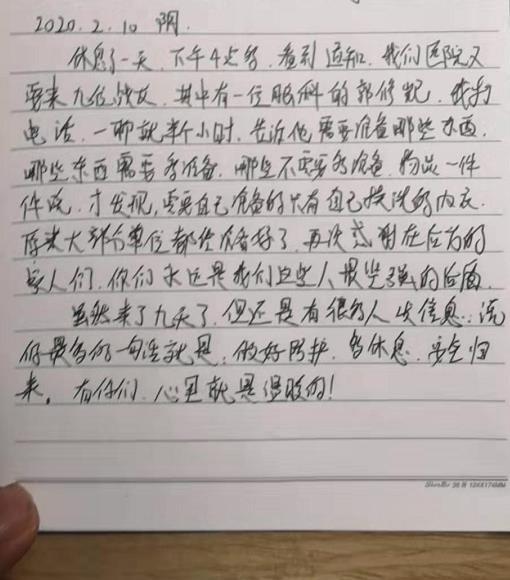 2020.2.10 阴.
休息了一天,下午4点多,看到通知,我们医院又
要来九位战友,其中有一位眼科的郭修妮,我打
电话,一聊就半个小时,告诉他需要准备哪些东西,
哪些东西需要多准备,哪些不需要多准备,物品一件
件说,才发现,需要自己准备的只有自己换洗的内衣.
原来大部分单位都给准备好了,再次感谢在后方的
家人们,你们永远是我们这些人最坚强的后盾.
虽然来了九天了,但还是有很多人发信息,说
的最多的一句话就是:做好防护,多休息,安全归
来,有你们,心里就是温暖的!